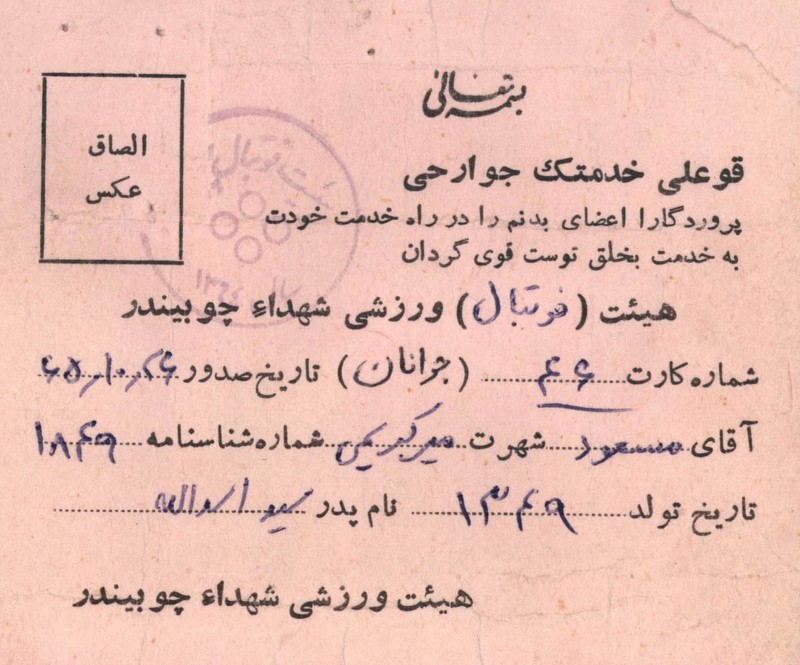 بسمه تعالی
الصاق
عکس
قو علی خدمتک جوارحی
پروردگارا اعضای بدنم را در راه خدمت خودت
به خدمت بخلق توست قوی گردان
هیئت (فوتبال) ورزشی شهداء چوبیندر
شماره کارت ۴۶ (جوانان) تاریخ صدور
آقای مسعود شهرت میرکریمی شماره شناسنامه ۱۸۴۹
تاریخ تولد ۱۳۴۹ نام پدر سید اسدالله
هیئت ورزشی شهداء چوبیندر